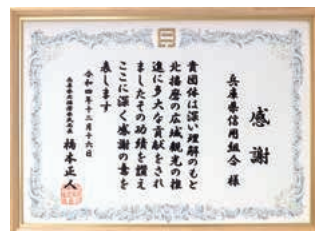 感謝
兵庫県信用組合 様
貴団体は深い理解のもと
北播磨の広域観光の推
進に多大な貢献をされ
ましたその功績を讃え
ここに深く感謝の意を
表します
令和四年十二月十六日
橋本正人